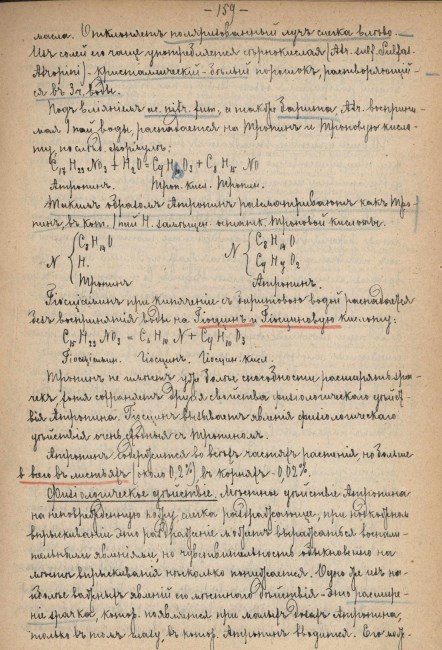 - 159 -
масла. Отклоняетъ поляризованный лучъ слегка влѣво.
Изъ солей его чаще употребляется сѣрнокислая (Atr. sulf. Sulfat.
Atropini) - кристаллическій бѣлый порошокъ, растворяющій-
ся въ 3 ч. воды.
Подъ вліяніемъ ac. nitr. fum., а также барита, Atr. воспри-
нимая 1 пай воды, распадается на Тропинъ и Троповую кисло-
ту, по слѣд. формулѣ:
C17 H23 NO3 + H2O = C9 H10 O3 + C8 H15 NO
Атропинъ. Троп. кисл. Тропин.
Такимъ образомъ Атропинъ разсматриваютъ какъ Тро-
пинъ, въ кот. 1 пай H. замѣщен. остатк. Троповой кислоты.
N { C8 H14 O N { C8 H14 O
H. C9 H9 O2
Тропинъ Атропинъ.
Гіосціаминъ при кипяченіи съ баритовою водой распадается
безъ воспринятія воды на Гіосцинъ и Гіосциновую кислоту:
C15 H23 NO3 = C6 H13 N + C9 H10 O3
Гіосціамин. Гіосцинъ. Гіосцин. кисл.
Тропинъ не имѣетъ уже болѣе способности расширять зра-
чекъ, хотя сохраняетъ другія свойства физіологическаго дѣйст-
вія Атропина. Гіосцинъ вызываетъ явленія физіологическаго
дѣйствія очень сходныя съ Тропиномъ.
Атропинъ содержится во всѣхъ частяхъ растенія, но больше
всего въ листьяхъ (около 0,2%) въ корняхъ - 0,02%.
Физіологическое дѣйствіе. Мѣстное дѣйствіе Атропина
на неповрежденную кожу слегка раздражающе, при подкожномъ
впрыскиваніи это раздраженіе можетъ выражаться воспали-
тельными явленіями, но чувствительность обыкновенно на
мѣстѣ впрыскиванія нѣсколько понижается. Одно же изъ на-
иболѣе важныхъ явленій его мѣстнаго дѣйствія - это расшире-
ніе зрачка, котор. появляется при малыхъ дозахъ Атропина,
только въ томъ глазу, въ котор. Атропинъ вводится. Его мож-